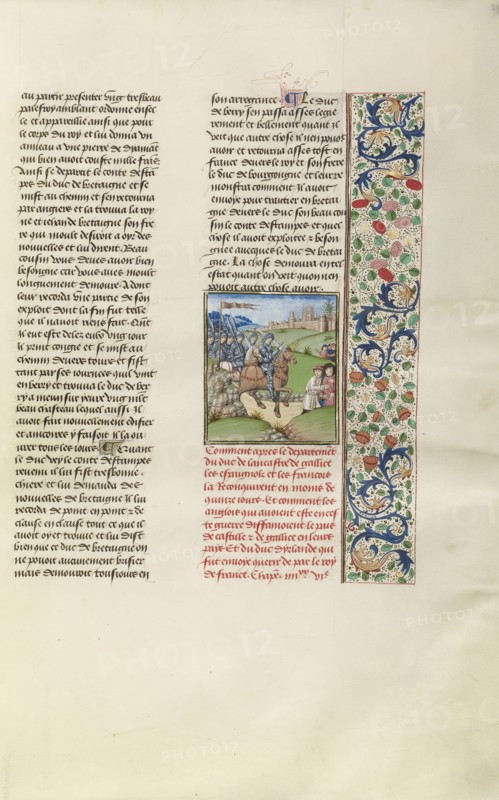 au partir presenter vng tresbeau
palefroy amblant ordonne ensel
le et appareillie ainsi que pour
le corps du roy et lui donna vn
anneau a vne pierre de dyamant
qui bien auoit couste mille frans
Ainsi se departi le conte destam
pes du duc de bretaigne et se
mist au chemin et sen retourna
par angiers et la trouua la roy
ne et iehan de bretaigne son fre
re qui moult desiroit a oyr des
nouuelles et lui dirent Beau
cousin vous deues auoir bien
besongne car vous aues moult
longuement demoure. Adont
leur recorda vne partie de son
exploit dont la fin fut telle
que il nauoit riens fait. Quant
il eut este deles eulx vng iour
il print congie et se mist au
chemin deuers tours et fist
tant par ses iournees quil vint
en berry et trouua le duc de ber
ry a meun sur yeure vng mlt
beau chasteau lequel aussi il
auoit fait nouuellement edifier
et ancores y faisoit il la ou
urer tous les iours. ¶ Quant
le duc vey le conte destampes
reuenu il lui fist tresbonne
chiere et lui demanda des
nouuelles de bretaigne il lui
recorda de point en point et de
clause en clause tout ce que il
auoit oy et trouue et lui dist
bien que ce duc de bretaigne on
ne pouoit aucunement briser
mais demouroit tousiours en
son arrogance. ¶ Le duc
de berry sen passa asses legie
rement et bellement quant il
veit que autre chose il nen pouoit
auoir et retourna asses tost en
france deuers le roy et son frere
le duc de bourgoingne et leur re
monstra comment il auoit
enuoye pour traittier en bretai
gne deuers le duc son beau cou
sin le conte destampes et quel
chose il auoit exploitie et beson
gnie auecques le duc de bretai
gne. La chose demoura en tel
estat quant on veit quon nen
pouoit autre chose auoir.
Comment apres le departement
du duc de lancastre de gallice
les espaignolz et les francois
la reconquirent en moins de
quinze iours. Et comment les
anglois qui auoient este en ces
te guerre diffamoient le pais
de castille et de gallice en leurs
pays Et du duc dirlande qui
fut enuoye querir de par le roy
de france. Chapitre iiiixx vie
PHOTO12